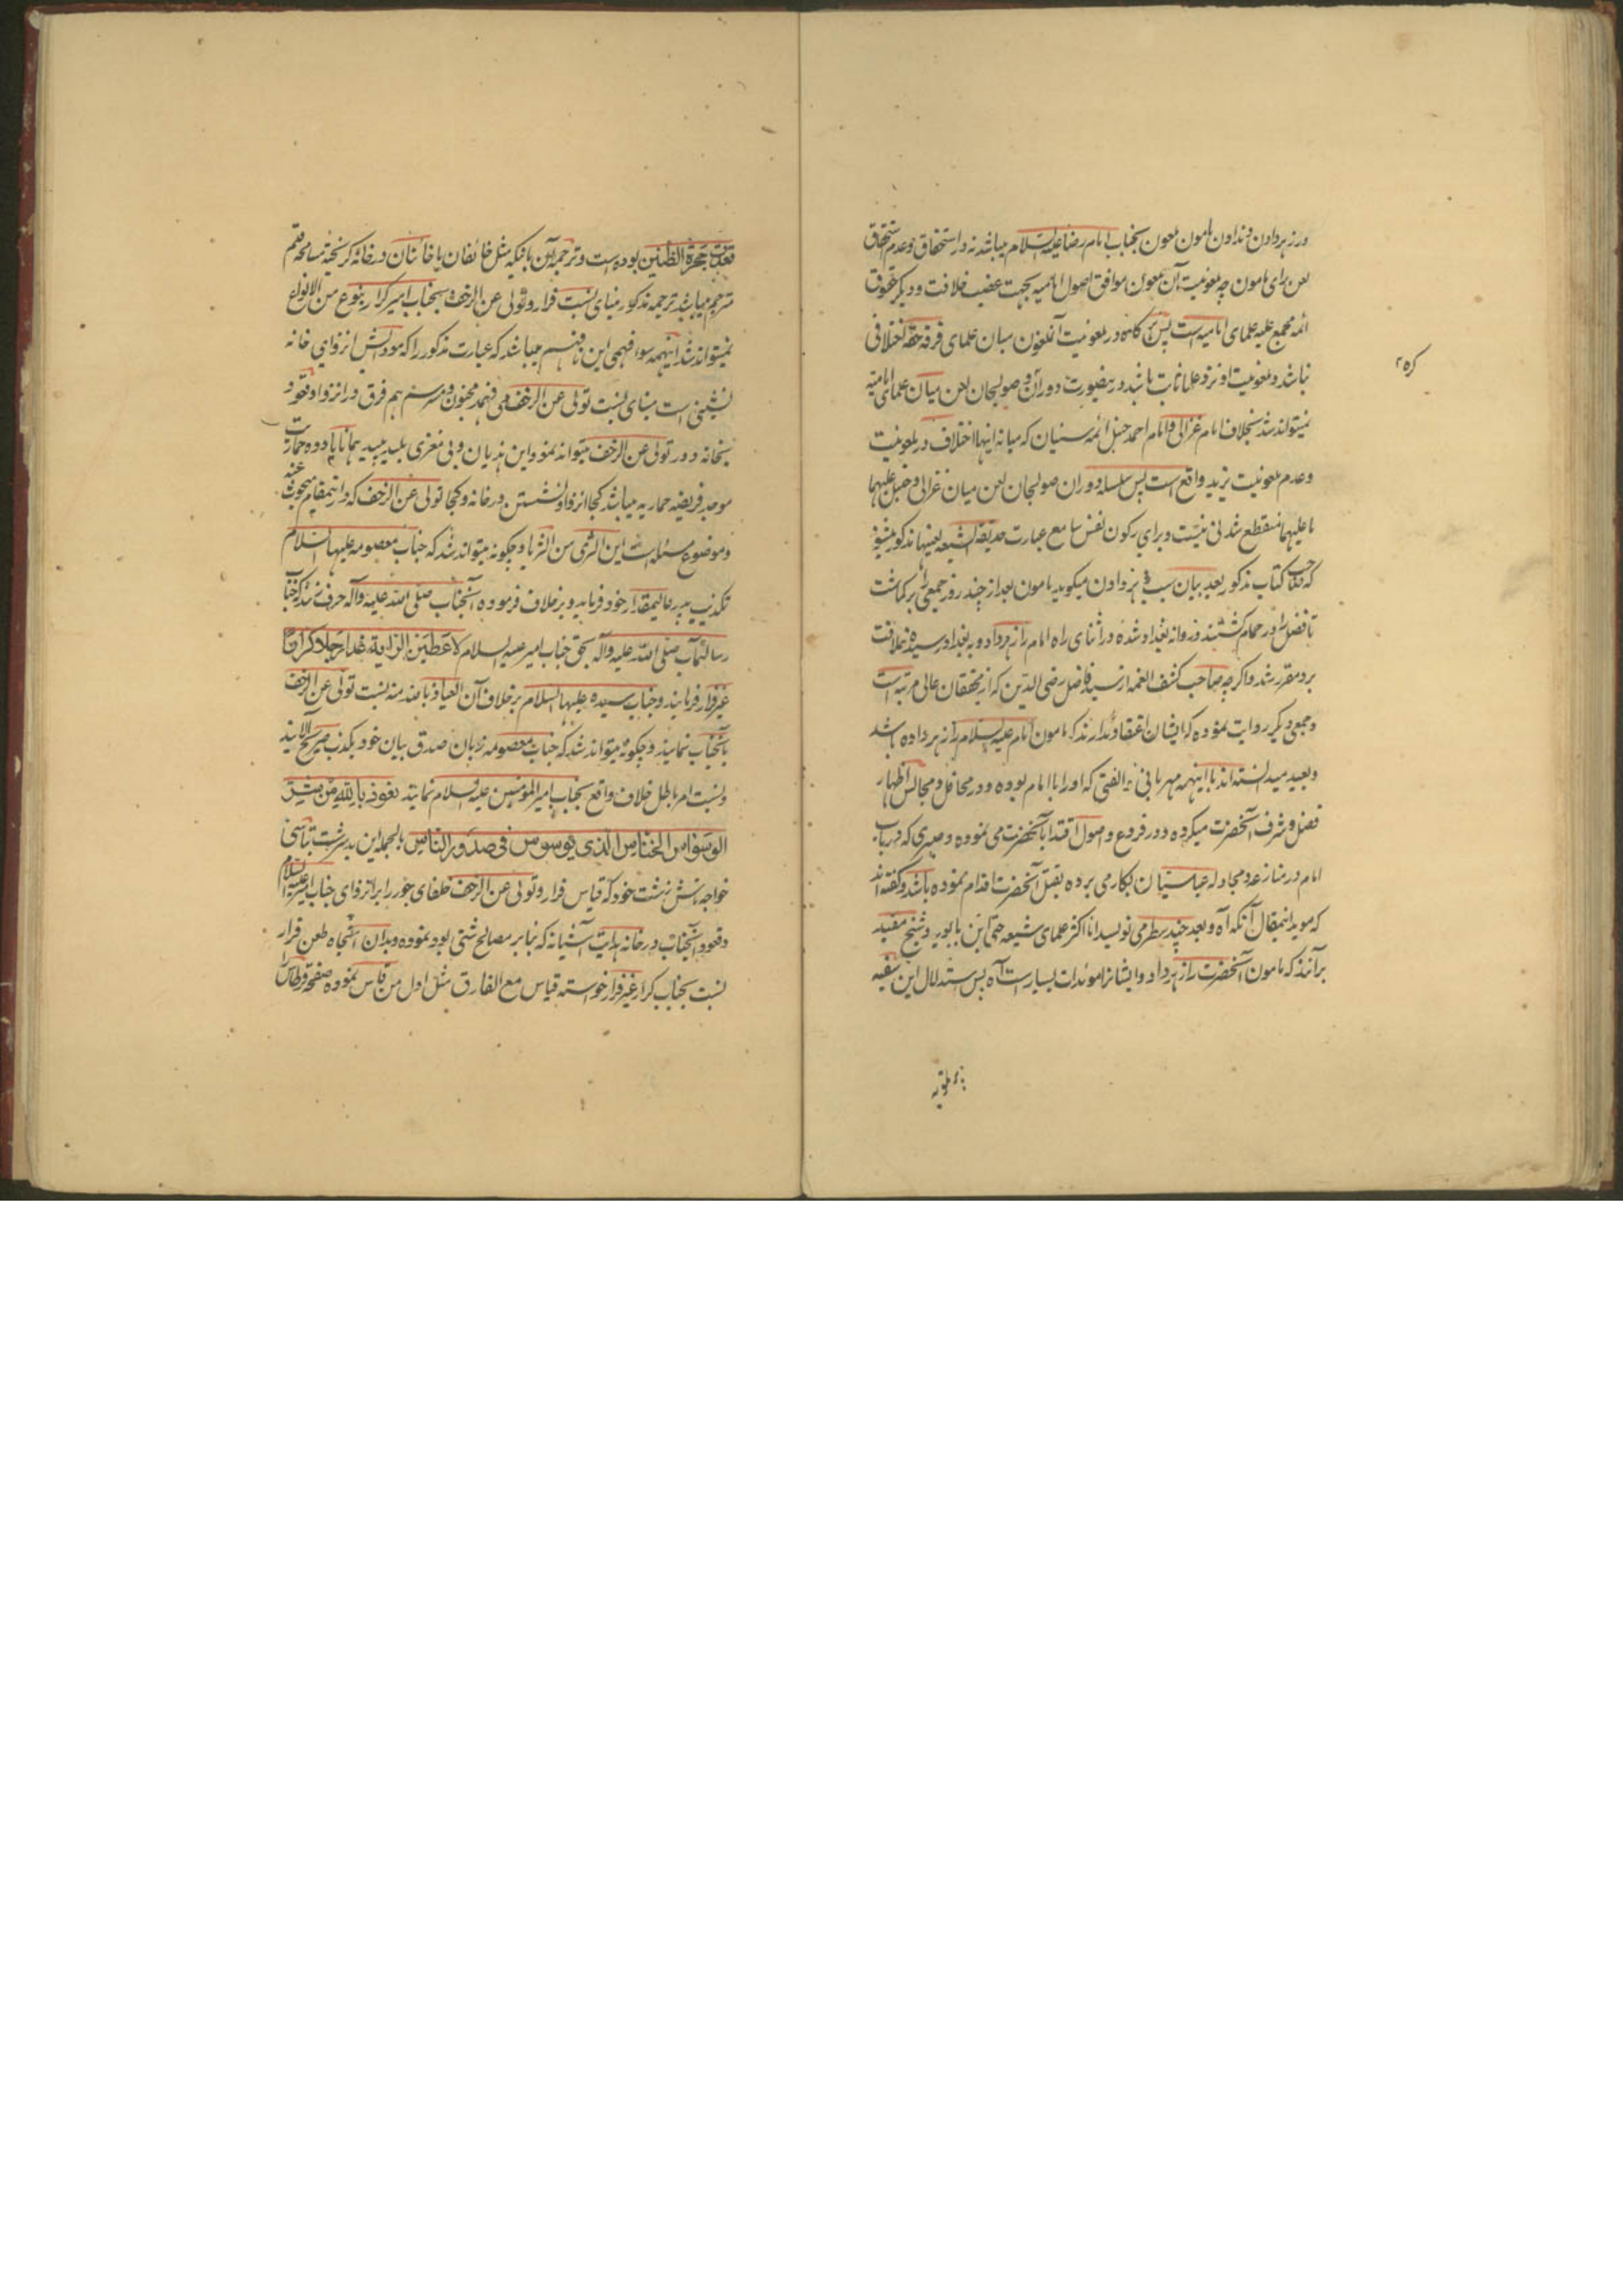 در زهر دادن و ندادن مامون ملعون بجناب امام رضا علیه السلام میباشد نه در استحقاق و عدم استحقاق
لعن برای مامون چه ملعونیت آن ملعون موافق اصول امامیه بجهت غصب خلافت و دیگر حقوق
ائمه مجمع علیه علمای امامیه است پس کاه در ملعونیت آنملعون میان علمای فرقه حقه اختلافی
نباشد و ملعونیت او نزد علما ثابت باشد درینصورت دوران صولجان لعن میان علمای امامیه
نمیتواند شد بخلاف امام غزالی و امام احمد حنبل ائمه سنیان که میانه اینها اختلاف در ملعونیت
وعدم ملعونیت یزید واقع است پس سلسله دوران صولجان لعن میان غزالی و حنبل علیهما
ما علیهما منقطع شدنی نیست و برای رکون نفس سامع عبارت حدیقة الشیعه بعینها مذکور میشود
که صاحب کتاب مذکور بعد بیان سبب زهر دادن میگوید مامون بعد از چند روز جمعی را برگماشت
تا فضل را در حمام کشتند و روانه بغداد شده در اثنای راه امام را زهر داد و به بغداد رسیده خلافت
برو مقرر شد و اگرچه صاحب کشف الغمه از سید فاضل رضی الدین که از محققان عالی مرتبه است
و جمعی دیگر روایت نموده که ایشان اعتقاد ندارند که مامون امام علیه السلام را زهر داده باشد
و بعید میدانسته اند با اینهمه مهربانی و الفتی که او را با امام بوده و در محافل و مجالس اظهار
فضل و شرف آنحضرت میکرده و در فروع و اصول اقتدا بآنحضرت می نموده و صبری که در باب
امام در منازعه و مجادله عباسیان بکار می برده بقتل آنحضرت اقدام نموده باشد و گفته اند
که موید اینمقال آنکه آه و بعد چند سطر می نویسد اما اکثر علمای شیعه حتی ابن بابویه و شیخ مفید
برآنند که مامون آنحضرت را زهر داد و ایشانرا مویدات بسیار است آه پس استدلال این سفیه
قعدت حجرة الظنین بوده است و ترجمه آن باینکه مثل خائفان یا خائنان در خانه گریخته مسامحه
مترجم میباشد ترجمه مذکور مبنای نسبت فرار و تولی عن الزحف بجناب امیر کرار بنوع من الانواع
نمیتواند شد اینهمه سوء فهمی این نافهم میباشد که عبارت مذکور را که مودایش انزوای خانه
نشینی است مبنای نسبت تولی عن الزحف می فهمد مجنون و مبرسم هم فرق در انزوا و قعود
بخانه و در تولی عن الزحف میتواند نمود این هذیان و بی مغزی بلید پلید همانا
موجد فریضه حماریه میباشد کجا انزوا و نشستن در خانه و کجا تولی عن الزحف که در اینمقام مبحوث عنه
و موضوع مسئله است این الثری من الثریا و چگونه میتواند شد که جناب معصومه علیها السلام
تکذیب پدر عالیمقدار خود فرماید و بر خلاف فرموده آنجناب صلی الله علیه وآله حرف زند که جناب
رسالتمآب صلی الله علیه وآله بحق جناب امیر علیه السلام لاعطین الرایة غدا رجلا کرارا
غیر فرار فرمایند و جناب سیده علیها السلام بر خلاف آن العیاذ بالله منه نسبت تولی عن الزحف
بآنجناب نمایند و چگونه میتواند شد که جناب معصومه زبان صدق بیان خود بکذب صریح آلایند
و نسبت امر باطل خلاف واقع بجناب امیر المومنین علیه السلام نمایند نعوذ بالله من شر
الوسواس الخناس الذی یوسوس فی صدور الناس بالجمله این بدسرشت بتاسی
خواجه تاش زشت خود که قیاس فرار و تولی عن الزحف خلفای جور را بر انزوای جناب امیر علیه السلام
و قعود آنجناب در خانه هدایت آشیانه که بنابر مصالح شتی بود نموده و بدان اتجاه طعن فرار
نسبت بجناب کرار غیر فرار خواسته قیاس مع الفارق مثل اول من قاس نموده صفحه قرطاس را